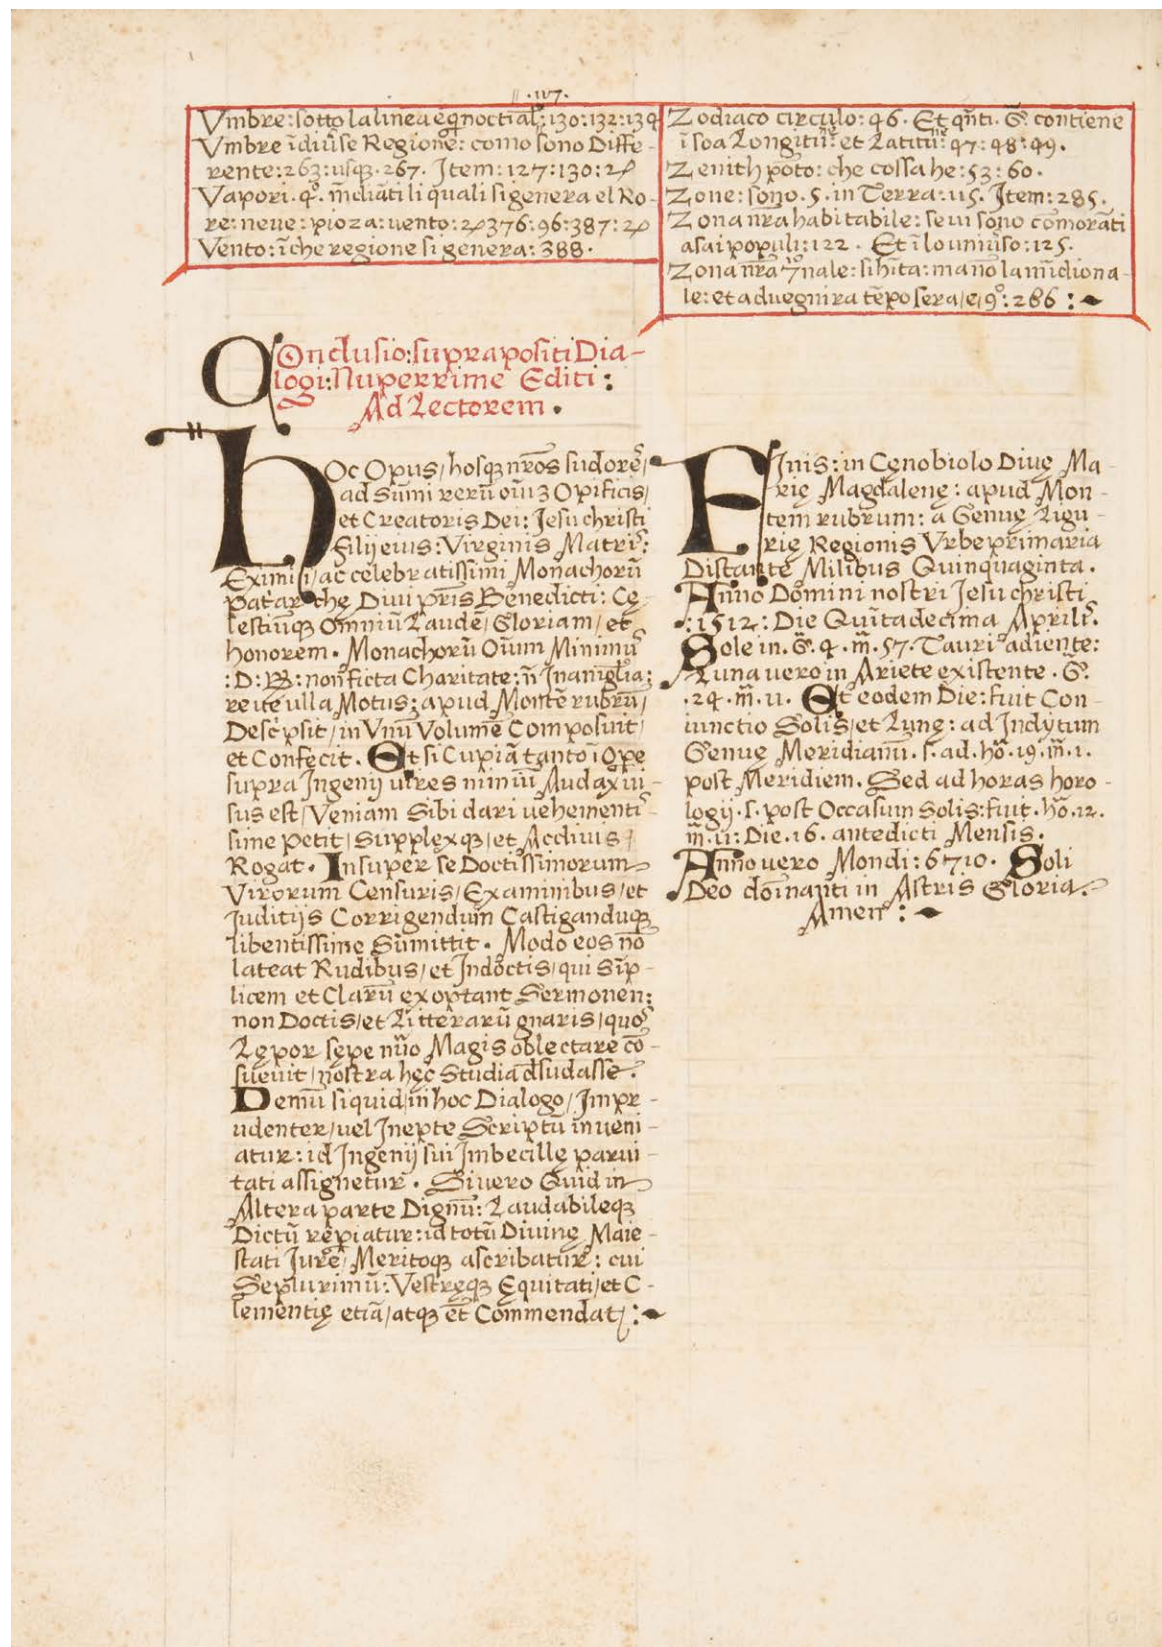 Vmbre: sotto la linea eq̄noctial̄: 130: 132: 134
Vmbre ī diu̅se Regione: como sono Diffe-
rente: 263: usqꝫ. 267. Item: 127: 130:
Vapori. q°. m̄diāti li quali si genera el Ro-
re: neue: pioza: uento: 376: 96: 387:
Vento: ī che regione si genera: 388.
Zodiaco circulo: 46. Et qn̄ti. G̅. contiene
ī soa Longitu̅: et Latitu̅: 47: 48: 49.
Zenith pōto: che cossa he: 53: 60.
Zone: sono. 5. in Terra: 115. Item: 285.
Zona nr̄a habitabile: se ui sono comorāti
asai populi: 122. Et ī lo uniūso: 125.
Zona nr̄a: si hīta: ma nō la mīdiona-
le: et aduegnira tēpo sera, e, 9°: 286 :
COnclusio: supra positi Dia-
logi: Nuperrime Editi:
Ad Lectorem.
HOc Opus, hosqꝫ nr̄os sudore᷒,
ad Sūmi rerū oīuꝫ Opificis,
et Creatoris Dei: Jesu christi
filij eius: Virginis Matri᷒:
Eximij, ac celebratissimi Monachorū
patarche Diui pr̄is Benedicti: Cę-
lestiūqꝫ Omniū Laudē, Gloriam, et
honorem. Monachorū Oīum Minimꝰ
:D: B: non ficta Charitate: n̄ Inani gl̄ia:
reue ulla Motus: apud Montē rubrū,
Desc̓psit, in Vnū Volumē Composuit,
et Confecit. Et si Cupiā tanto ī Ope
supra Ingenij uires nimiū Audax ui-
sus est, Veniam Sibi dari uehementi᷒-
sime petit, Supplexqꝫ, et Accliuis,
Rogat. Insuper se Doctissimorum
Virorum Censuris, Examinibus, et
Juditijs Corrigendum Castiganduqꝫ
libentissime Sūmittit. Modo eos nō
lateat Rudibus, et Indoctis, qui Sīp-
licem et Clarū exoptant Sermonen:
non Doctis, et Litterarū gnaris, quo᷒
Lępor sępe nūo Magis oblectare cō-
sueuit, nostra hęc Studia dsudasse.
Demū siquid, in hoc Dialogo, Impr-
udenter, uel Inepte Scriptū inueni-
atur: id Ingenij sui Imbecillę parui-
tati assignetur. Siuero Quid in
Altera parte Dignū: Laudabileqꝫ
Dictū rep̄iatur: id totū Diuinę Maie-
stati Jure, Meritoqꝫ ascribatur: cui
Seplurimū: Vestręqꝫ Equitati, et C-
lementię etiā, atqꝫ et̄ Commendat, :
FInis: in Cęnobiolo Diuę Ma-
rię Magdalenę: apud Mon-
tem rubrum: a Genuę Ligu-
rię Regionis Vrbe primaria
Distante Milibus Quinquaginta.
Anno Domini nostri Jesu christi
:1512: Die Quītadecima Aprili᷒.
Sole in. G̅. 4. m̄. 57. Tauri adiente:
Luna uero in Ariete existente. G̅.
.24. m̄. 11. Et eodem Die: fuit Con-
iunctio Solis, et Lunę: ad Indytum
Genuę Meridianū. s. ad. hō. 19. m̄. 1.
post Meridiem. Sed ad horas horo-
logij. s. post Occasum Solis: fuit. hō. 12.
m̄. 11: Die. 16. antedicti Mensis.
Anno uero Mondi: 6710. Soli
Deo dōinanti in Astris Gloria.
Amen :